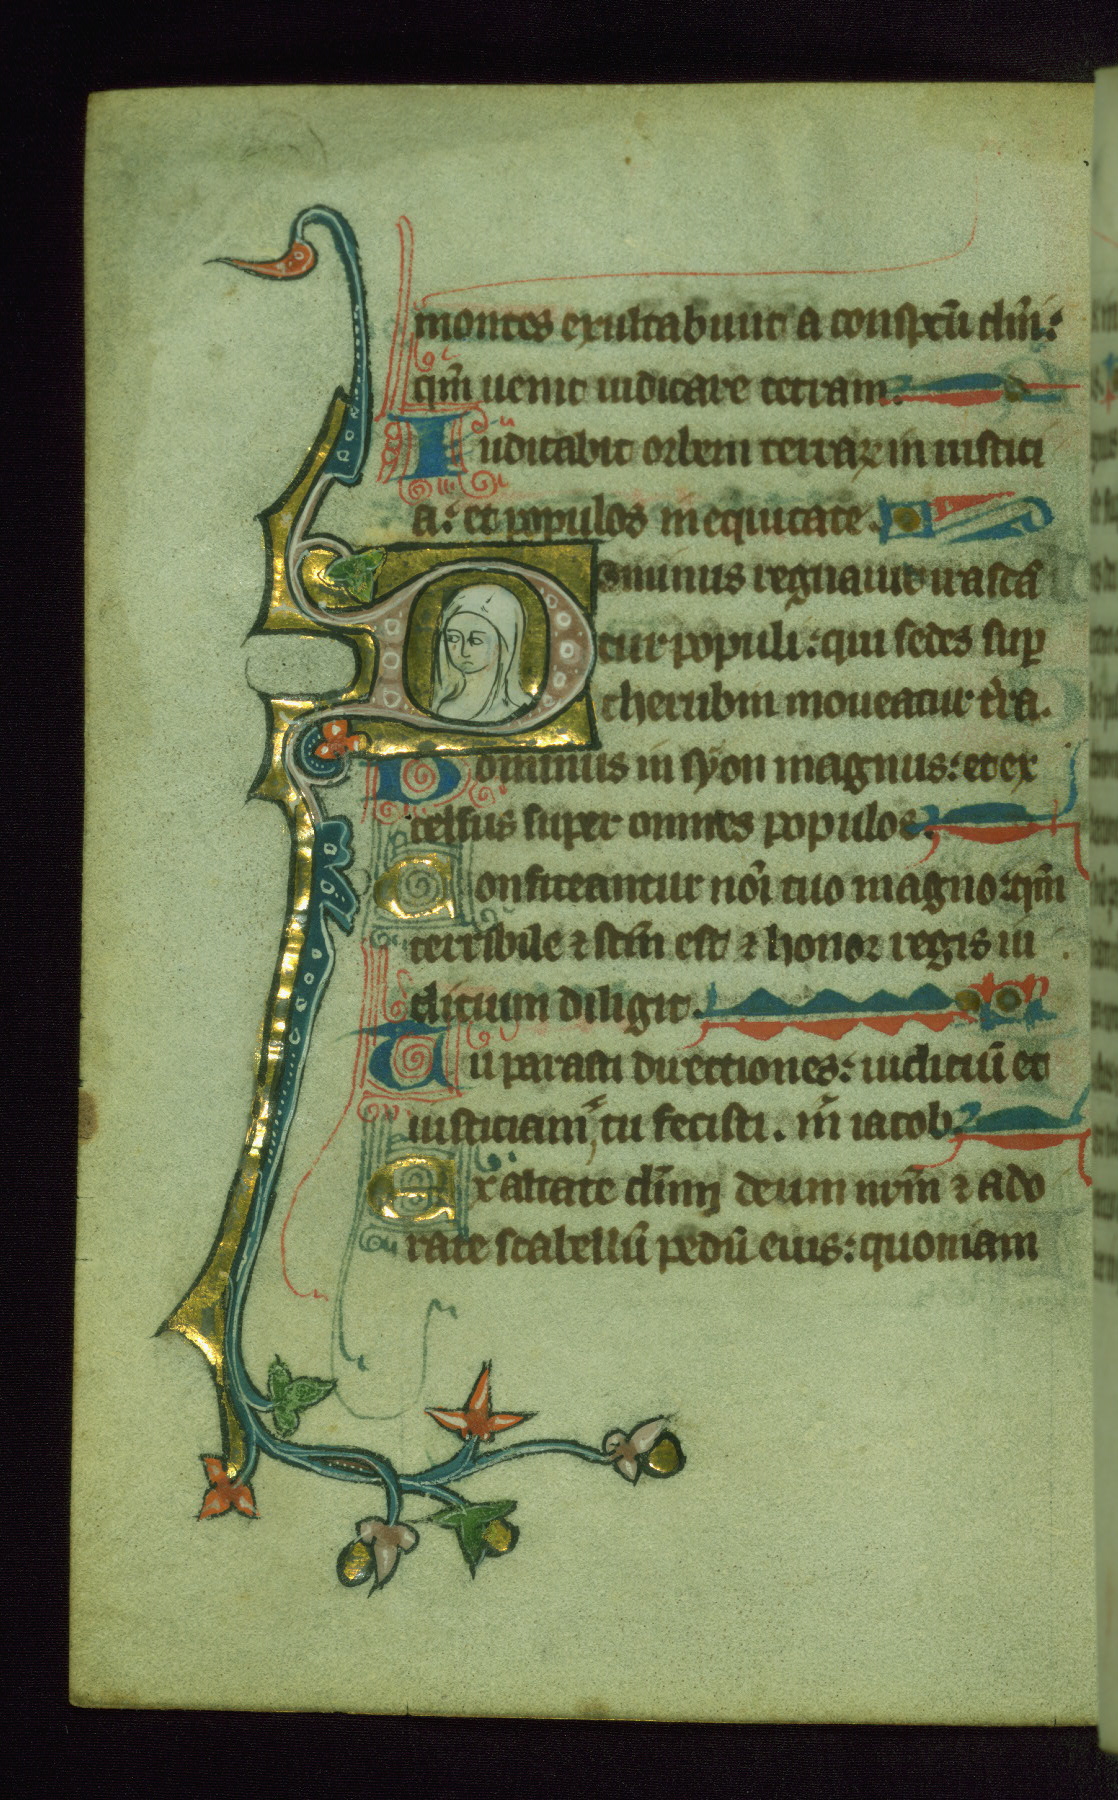 montes exultabunt a conspcũ dñi:
qm̃ uenit iudicare terram.
Iudicabit orbem terraꝝ in iustici
a: et populos in equitate.
Dominus regnauit irascã
tur populi: qui sedes suꝑ
cherubin moueatur tr̃a.
Dominus in syon magnus: et ex
celsus super omnes populos.
Confiteantur nõi tuo magno: qm̃
terribile ⁊ scm̃ est ⁊ honor regis iu
dicium diligit.
Tu parasti directiones: iudiciũ et
iusticiam tu fecisti. in iacob.
Exaltate dñm deum nrm̃ ⁊ ado
rate scabellũ pedũ eius: quoniam